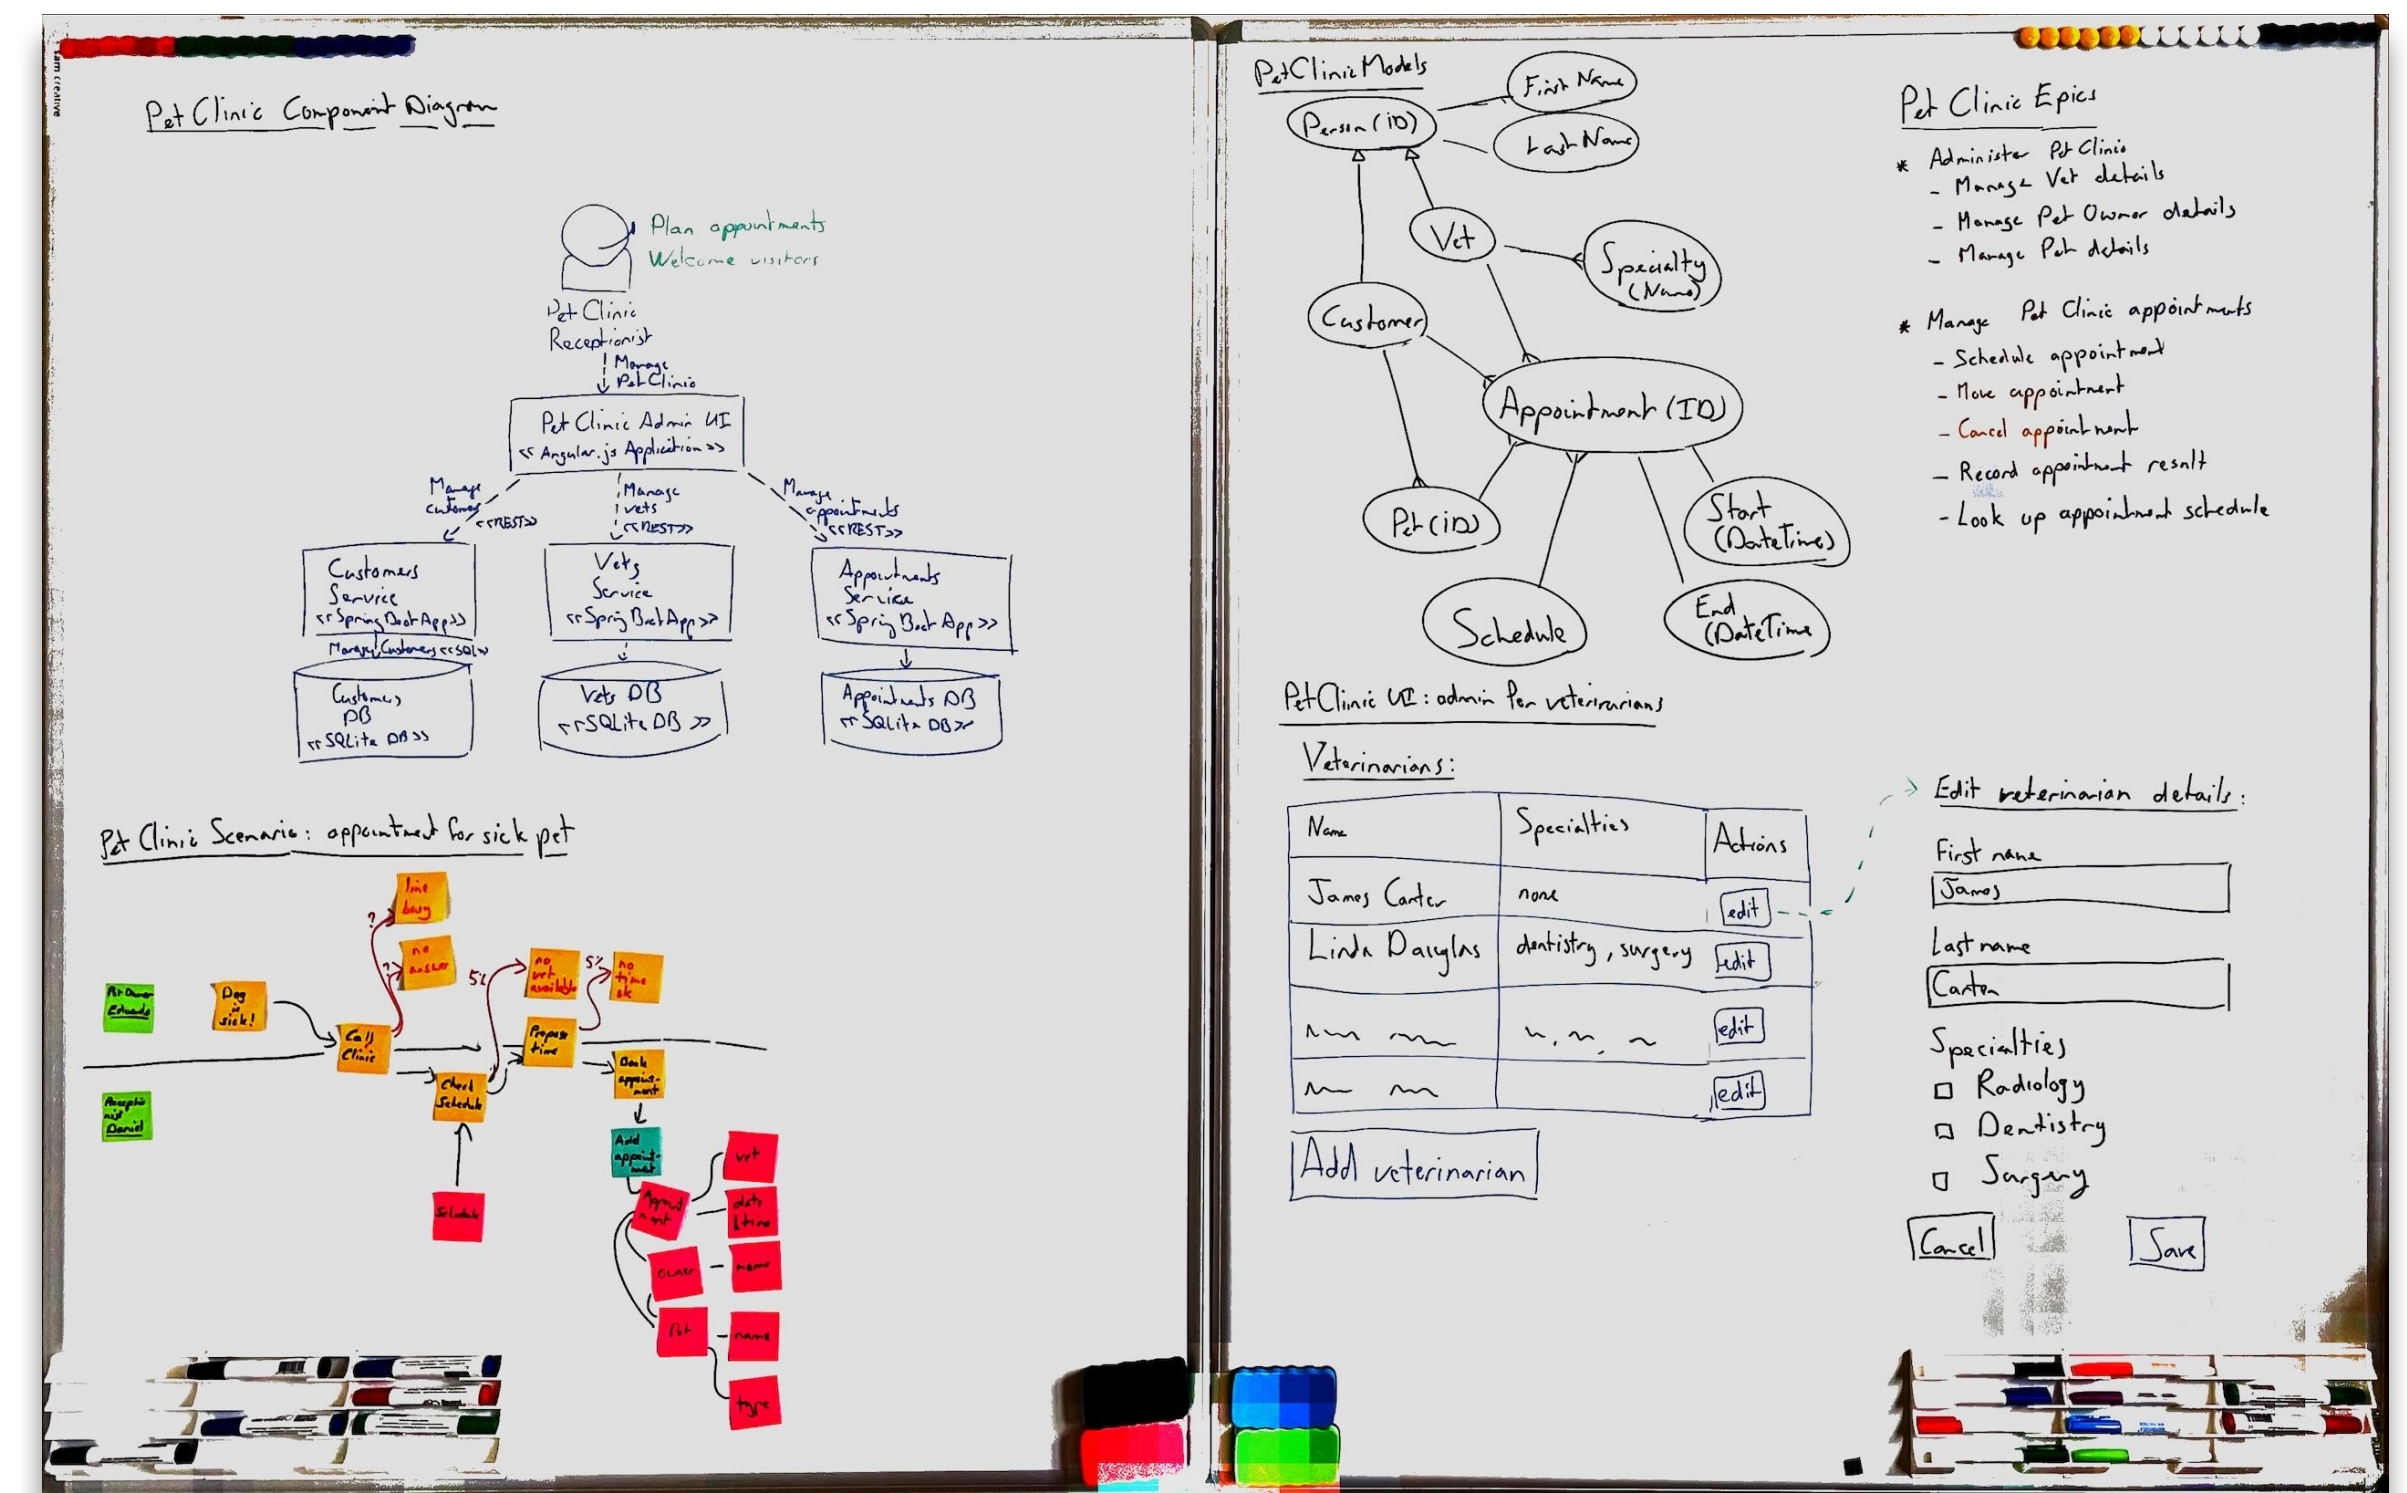 Pet Clinic Component Diagram
Plan appointments
Welcome visitors
Pet Clinic
Receptionist
Manage
Pet Clinic
Pet Clinic Admin UI
<< Angular.js Application >>
Manage
customers
<<REST>>
Manage
vets
<<REST>>
Manage
appointments
<<REST>>
Customers
Service
<<Spring Boot App>>
Manage Customers <<SQL>>
Customers
DB
<<SQLite DB>>
Vets
Service
<<Spring Boot App>>
Vets DB
<<SQLite DB>>
Appointments
Service
<<Spring Boot App>>
Appointments DB
<<SQLite DB>>
Pet Clinic Scenario: appointment for sick pet
line
busy
?
no
answer
?
5%
no
vet
available
5%
no
time
ok
Pet Owner
Eduardo
Dog
is
sick!
Call
Clinic
Propose
time
Check
Schedule
Book
appoint-
ment
Receptio
nist
Daniel
Add
appoint-
ment
Schedule
Appoint
ment
vet
date
time
owner
name
Pet
name
type
Pet Clinic Models
Person (iD)
First Name
Last Name
Vet
Specialty
(Name)
Customer
Appointment (ID)
Pet (iD)
Start
(DateTime)
Schedule
End
(DateTime
Pet Clinic Epics
* Administer Pet Clinic
- Manage Vet details
- Manage Pet Owner details
- Manage Pet details
* Manage Pet Clinic appointments
- Schedule appointment
- Move appointment
- Cancel appointment
- Record appointment result
- Look up appointment schedule
Pet Clinic UI: admin for veterinarians
Veterinarians:
Name Specialties Actions
James Carter none edit
Linda Douglas dentistry, surgery edit
edit
edit
Add veterinarian
Edit veterinarian details:
First name
James
Last name
Carter
Specialties
Radiology
Dentistry
Surgery
Cancel Save